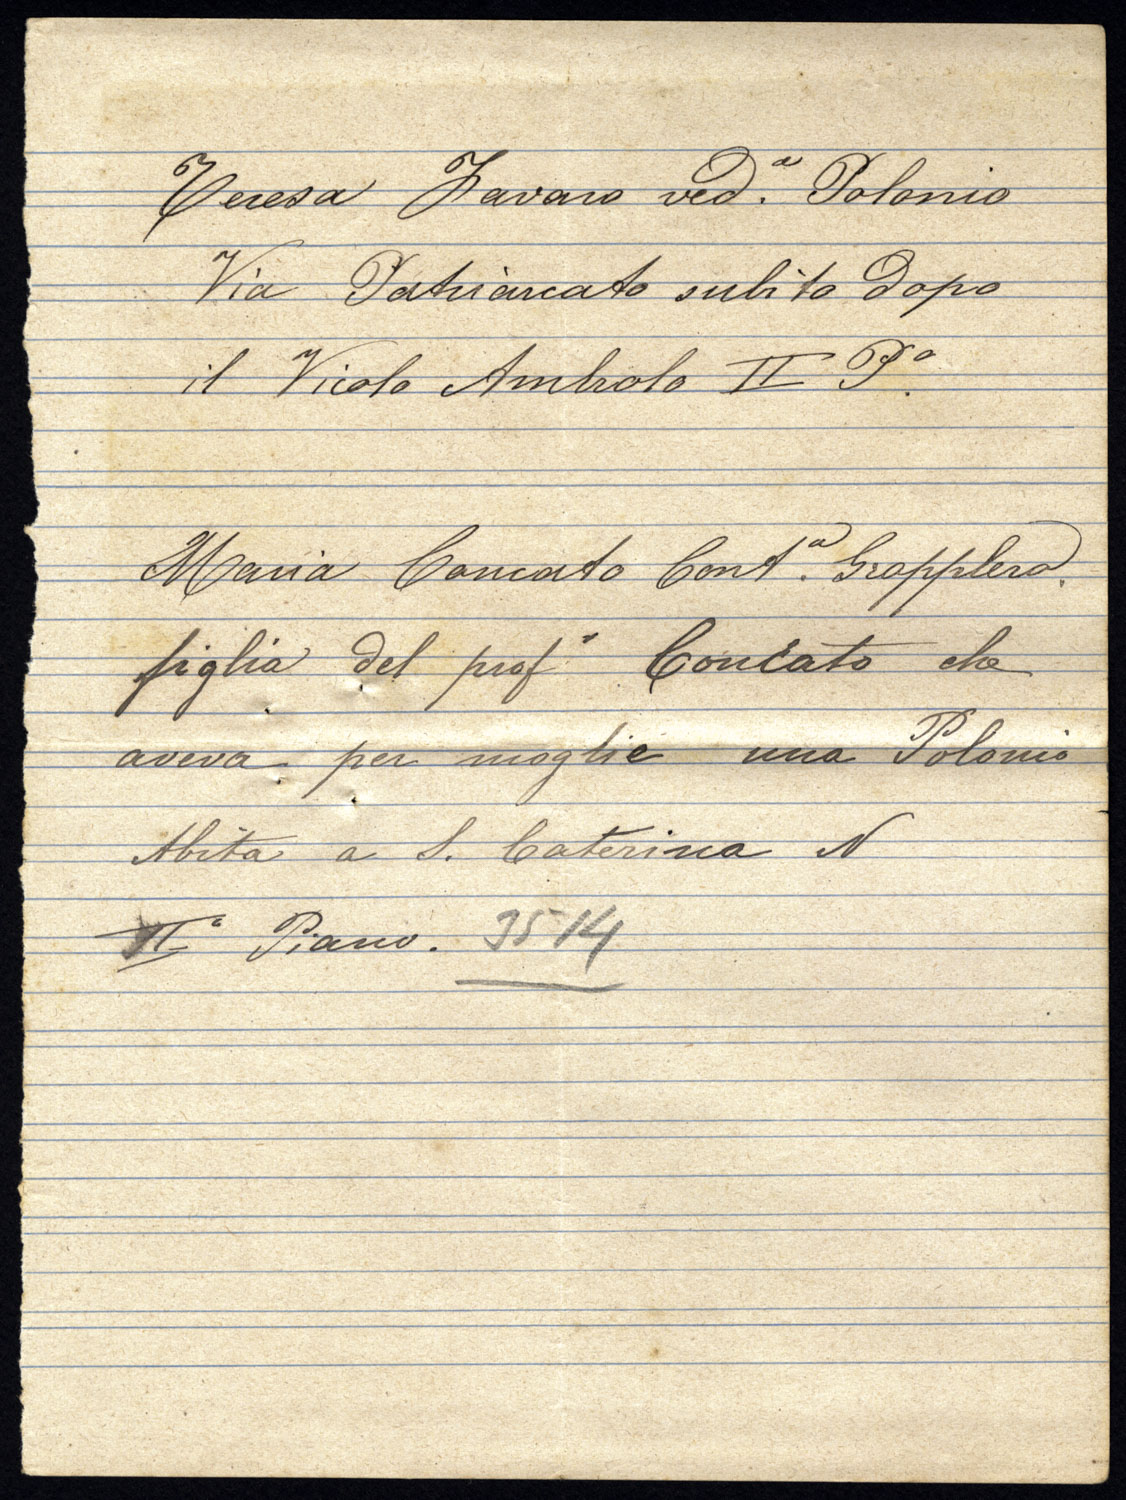 Teresa Favaro ved.ª Polonio
Via Patriarcato subito dopo
il Vicolo Ambrolo II Pº.
Maria Concato Cont.ª Gropplero.
figlia del prof.r Concato che
aveva per moglie una Polonio
Abita a S. Caterina N
IIº Piano. 3514